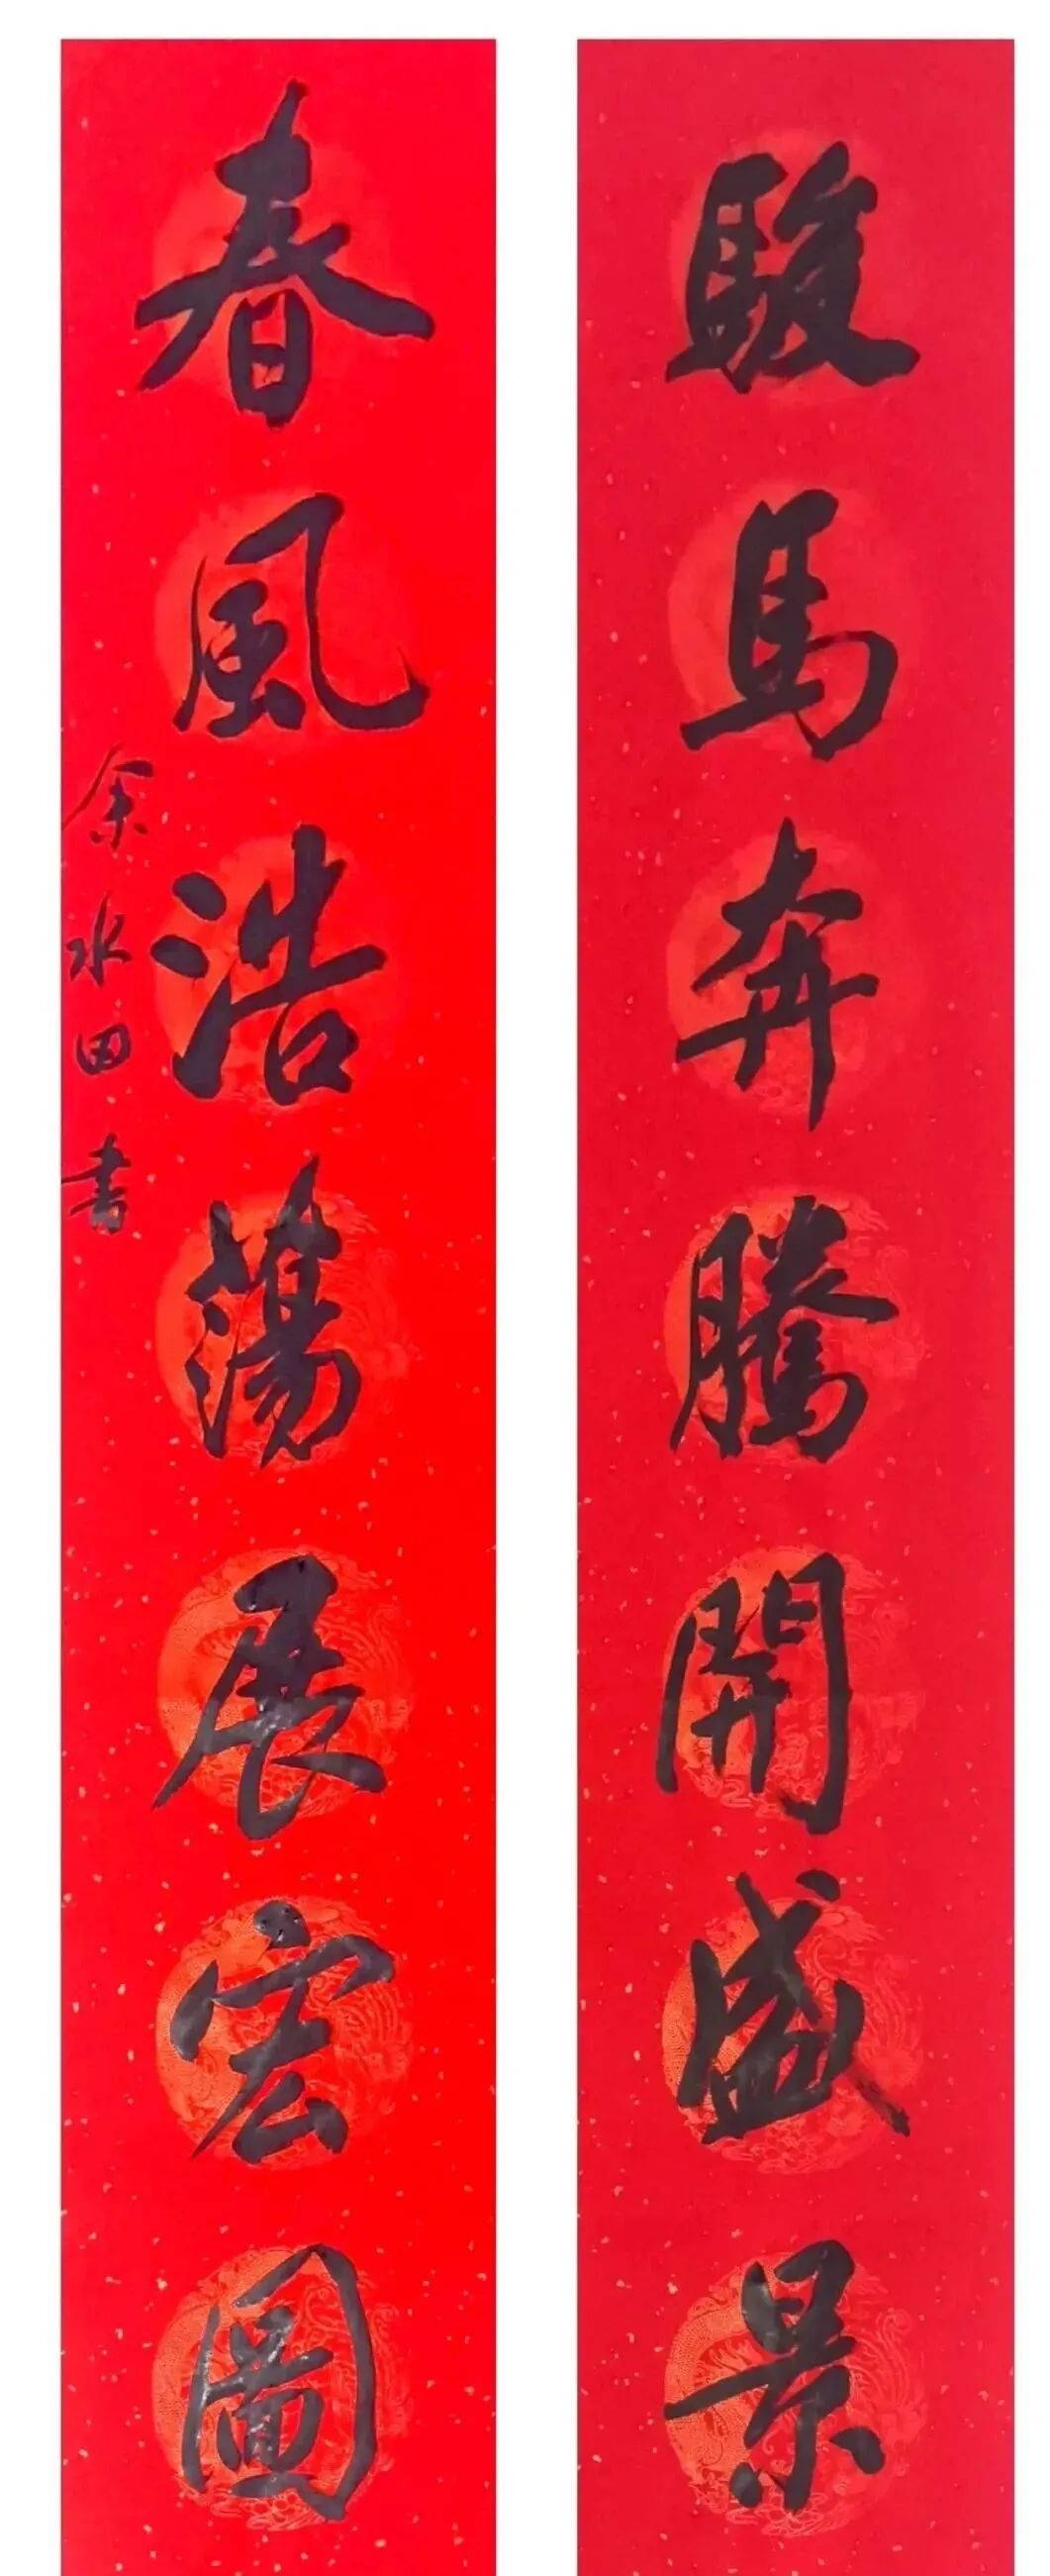 駿馬奔騰開盛景
春風浩蕩展宏圖
余水田書